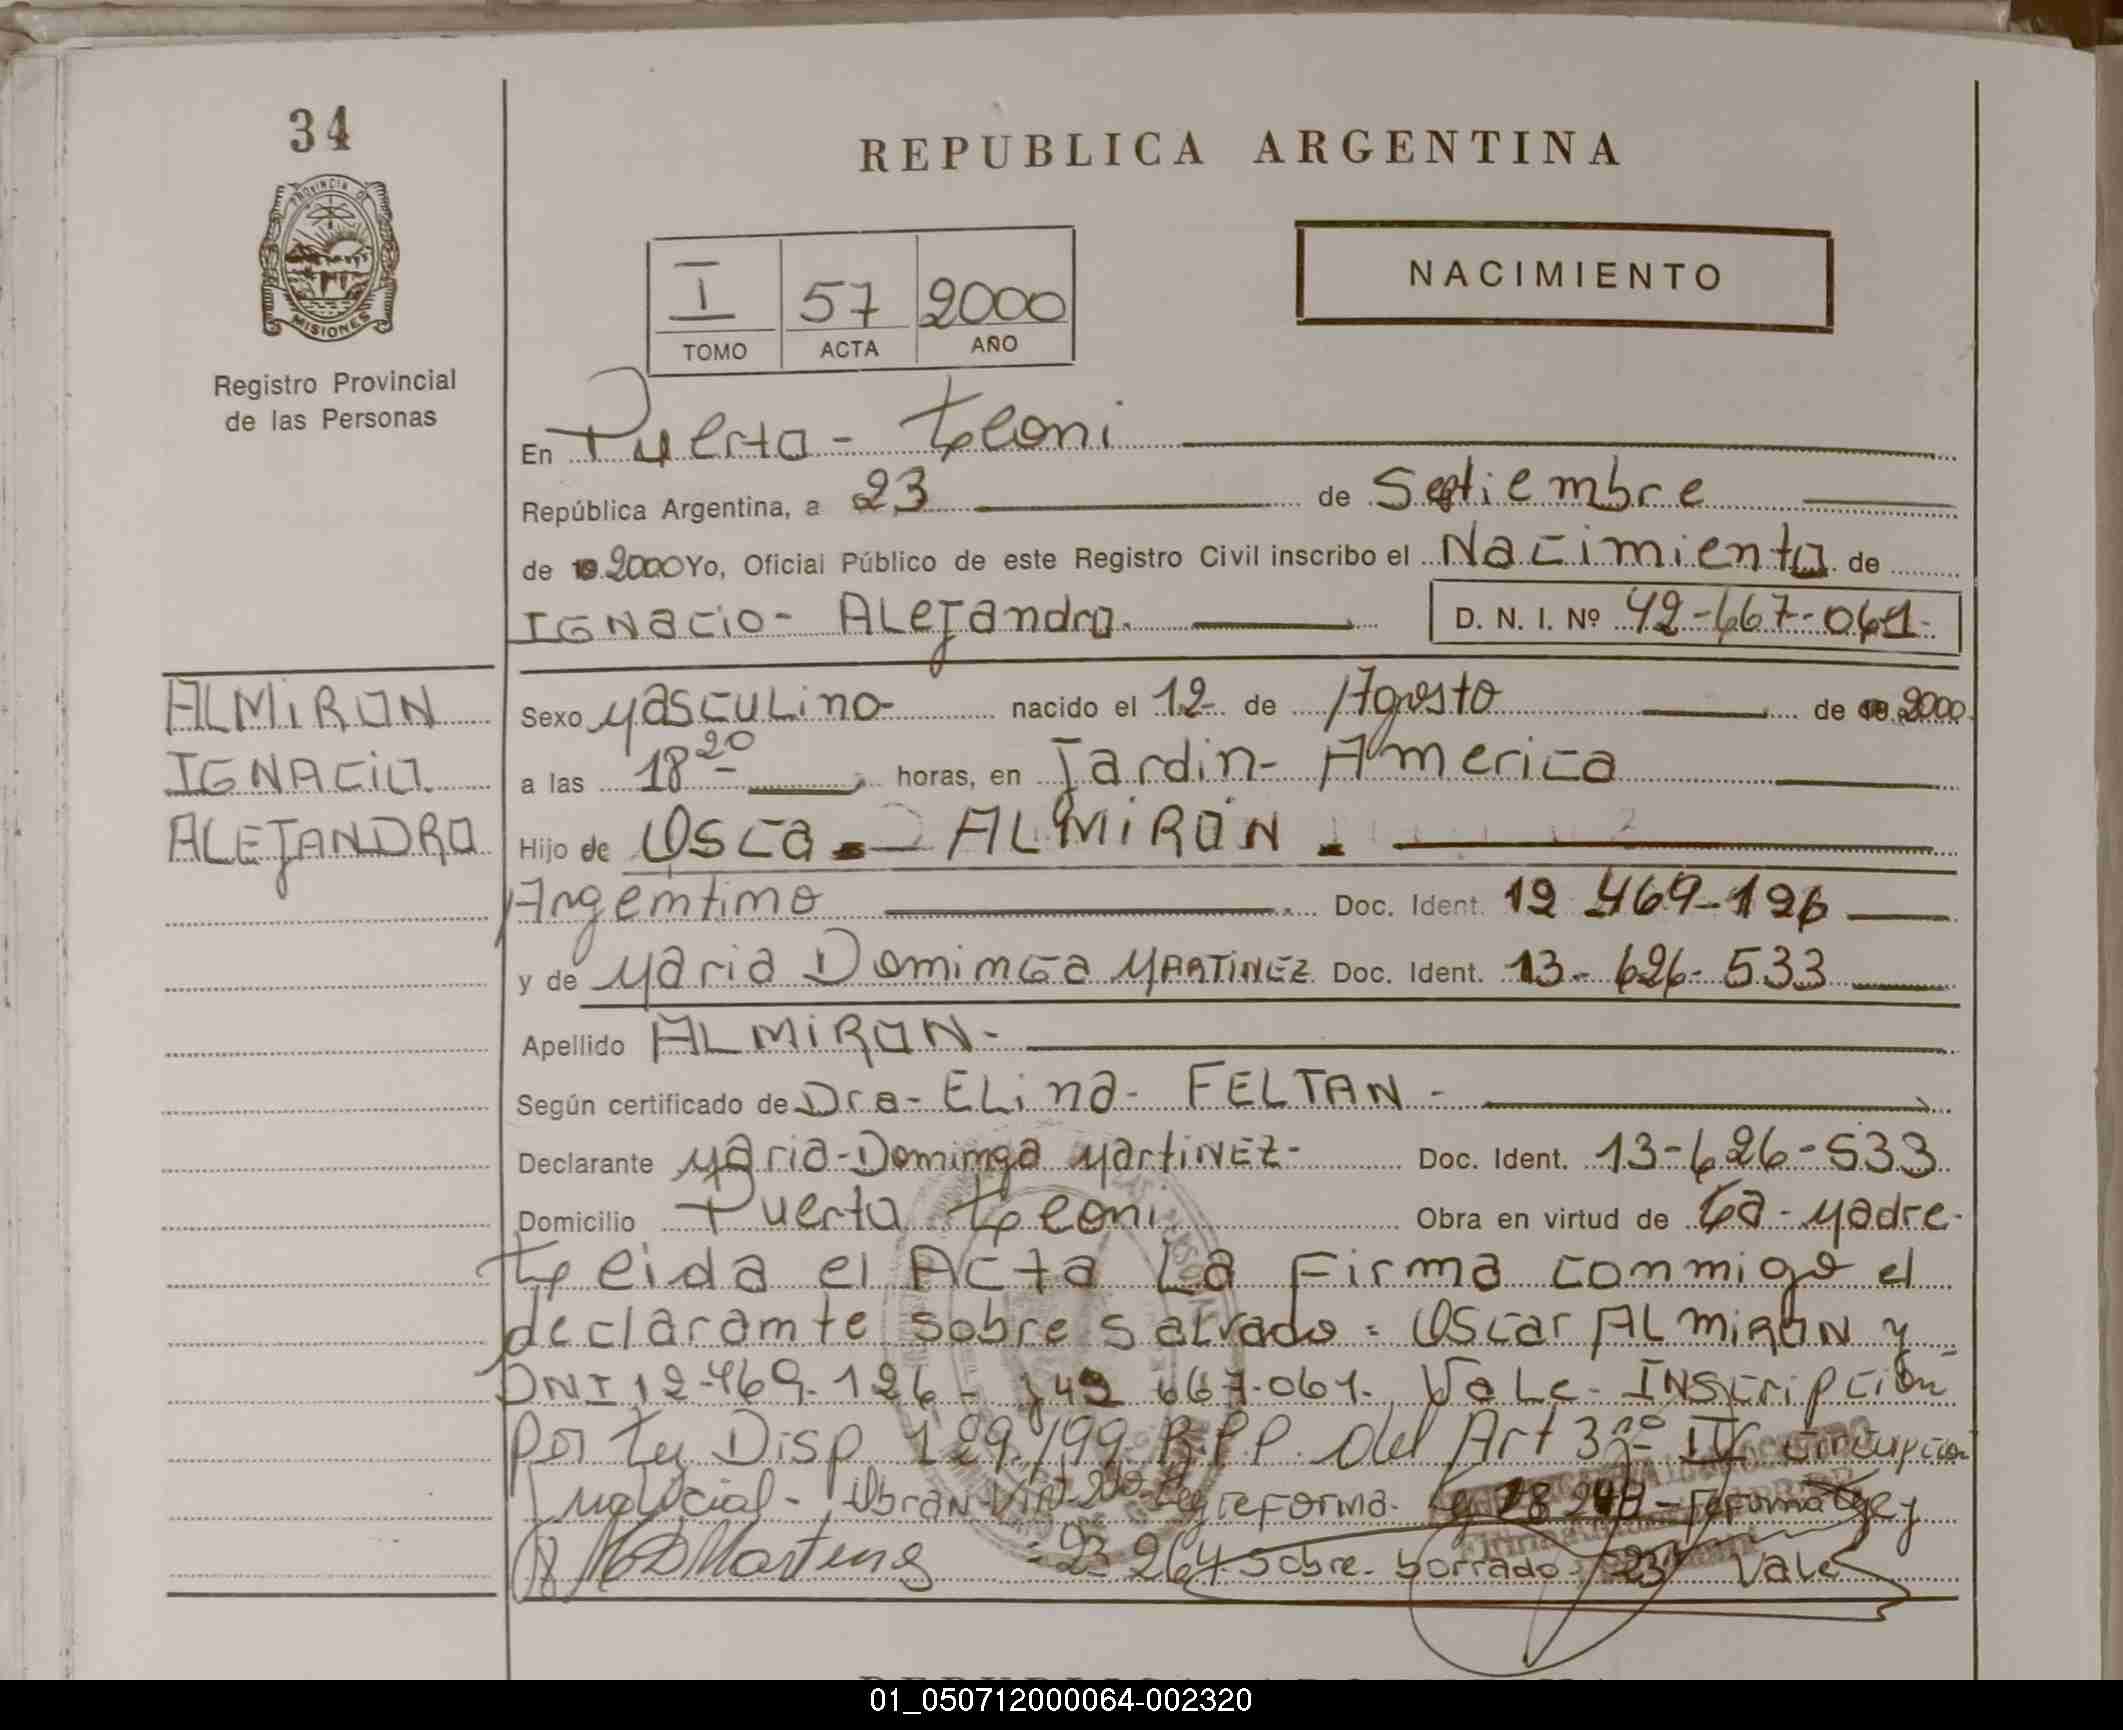 34
REPUBLICA ARGENTINA
PROVINCIA DE
MISIONES
NACIMIENTO
I 57 2000
TOMO ACTA AÑO
Registro Provincial
de las Personas
En Puerto - Leoni
República Argentina, a 23 de Septiembre
de 2000 Yo, Oficial Público de este Registro Civil inscribo el Nacimiento de
IGNACIO - ALEJANDRO. D. N. I. Nº 42-667-061-
ALMIRON
IGNACIO
ALEJANDRO
Sexo Masculino nacido el 12 de Agosto de 2000
a las 18 20 horas, en Jardin - America
Hijo de Osca ALMIRON.
Argentino Doc. Ident. 12 469-126
y de Maria Dominga MARTINEZ Doc. Ident. 13-626-533
Apellido ALMIRON -
Según certificado de Dra - ELina - FELTAN -
Declarante Maria - Dominga MartiNEZ - Doc. Ident. 13-626-533
Domicilio Puerto Leoni Obra en virtud de La - Madre -
Leida el Acta La Firma conmigo el
declarante sobre salvado = Oscar ALMIRON y
DNI 12-469-126 - 42 667-061. VaLe - INScripción
Por Ley Disp 129/99 R.P.P. del Art 3 IV
Judicial - Ley reforma - Ley
23 264 Sobre - borrado - 23 Vale
01_050712000064-002320